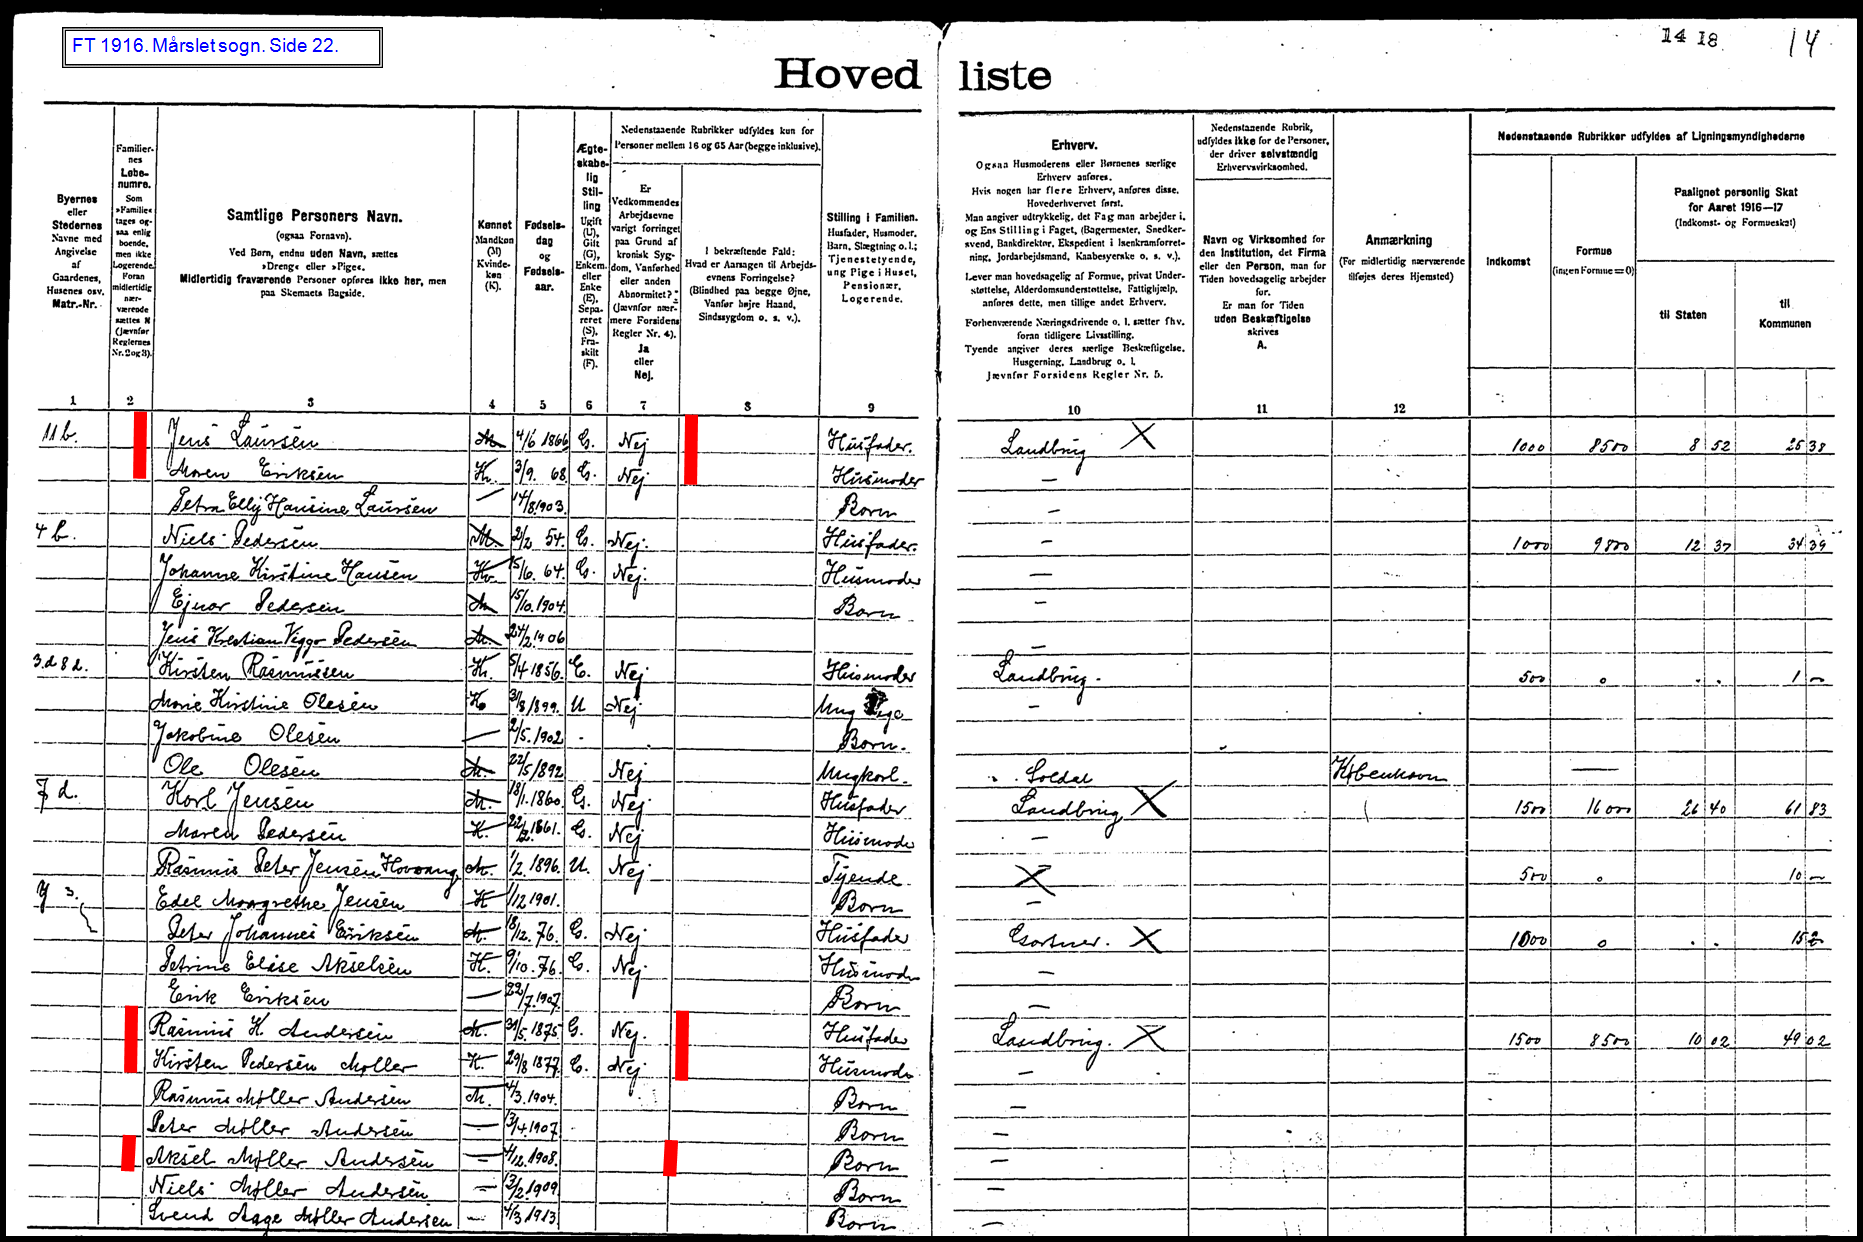 FT 1916. Mårslet sogn. Side 22.
14 18 14
Hoved liste
Byernes
eller
Stedernes
Navne med
Angivelse
af
Gaardenes,
Husenes osv.
Matr.-Nr.
Familier-
nes
Løbe-
numre.
Som
»Familie«
tages og-
saa enlig
boende,
men ikke
Logerende.
Foran
midlertidig
nær-
værende
sættes N
(Jævnfør
Reglernes
Nr. 2 og 3).
Samtlige Personers Navn.
(ogsaa Fornavn).
Ved Børn, endnu uden Navn, sættes
»Dreng« eller »Pige«.
Midlertidig fraværende Personer opføres ikke her, men
paa Skemaets Bagside.
Kønnet
Mandkøn
(M)
Kvinde-
køn
(K).
Fødsels-
dag
og
Fødsels-
aar.
Ægte-
skabe-
lig
Stil-
ling
Ugift
(U),
Gift
(G),
Enkem.
eller
Enke
(E),
Sepa-
reret
(S),
Fra-
skilt
(F).
Nedenstaaende Rubrikker udfyldes kun for
Personer mellem 16 og 65 Aar (begge inklusive).
Er
Vedkommendes
Arbejdsevne
varigt forringet
paa Grund af
kronisk Syg-
dom, Vanførhed
eller anden
Abnormitet?
(Jævnfør nær-
mere Forsidens
Regler Nr. 4).
Ja
eller
Nej.
I bekræftende Fald:
Hvad er Aarsagen til Arbejds-
evnens Forringelse?
(Blindhed paa begge Øjne,
Vanfør højre Haand,
Sindssygdom o. s. v.).
Stilling i Familien.
Husfader, Husmoder,
Barn, Slægtning o.l.;
Tjenestetyende,
ung Pige i Huset,
Pensionær,
Logerende.
Erhverv.
Ogsaa Husmoderens eller Børnenes særlige
Erhverv anføres.
Hvis nogen har flere Erhverv, anføres disse.
Hovederhvervet først.
Man angiver udtrykkelig, det Fag man arbejder i,
og Ens Stilling i Faget, (Bagermester, Snedker-
svend, Bankdirektør, Ekspedient i Isenkramforret-
ning, Jordarbejdsmand, Kaabesyerske o. s. v.).
Lever man hovedsagelig af Formue, privat Under-
støttelse, Alderdomsunderstøttelse, Fattighjælp,
anføres dette, men tillige andet Erhverv.
Forhenværende Næringsdrivende o. l. sætter fhv.
foran tidligere Livsstilling.
Tyende angiver deres særlige Beskæftigelse.
Husgerning, Landbrug o. l.
Jævnfør Forsidens Regler Nr. 5.
Nedenstaaende Rubrik,
udfyldes ikke for de Personer,
der driver selvstændig
Erhvervsvirksomhed.
Navn og Virksomhed for
den Institution, det Firma
eller den Person, man for
Tiden hovedsagelig arbejder
for.
Er man for Tiden
uden Beskæftigelse
skrives
A.
Anmærkning
(For midlertidig nærværende
tilføjes deres Hjemsted)
Nedenstaaende Rubrikker udfyldes af Ligningsmyndighederne
Indkomst
Formue
(ingen Formue = 0)
Paalignet personlig Skat
for Aaret 1916—17
(Indkomst- og Formueskat)
til Staten
til
Kommunen
1 2 3 4 5 6 7 8 9 10 11 12
11 b. Jens Laursen M. 4/6 1866 G. Nej Husfader. Landbrug X 1000 8500 8 52 25 38
Maren Eriksen K. 3/9. 68. G. Nej Husmoder —
Petra Elly Hansine Laursen — 14/8 1903. Barn —
4 b. Niels Pedersen M. 2/2 54. G. Nej. Husfader. — 1000 9800 12 37 34 39
Johanne Kirstine Hansen K. 15/6. 64. G. Nej. Husmoder —
Ejnar Pedersen M 15/10. 1904. Barn —
Jens Krestian Viggo Pedersen M. 24/2. 1906 —
3. d 8 d. Kirsten Rasmussen K. 5/4 1856. E. Nej Husmoder Landbrug. 500 0 . . 1 —
Marie Kirstine Olesen K 31/8 1899. U Nej Ung Pige —
Jakobine Olesen — 2/5. 1902 - Barn.
Ole Olesen M. 22/5 1892 Nej Ungkarl. Soldat København —
7 d. Karl Jensen M. 18/1. 1860. G. Nej Husfader Landbrug X 1500 16000 26 40 61 83
Maren Pedersen K. 22/2. 1861. G. Nej Husmoder —
Rasmus Peter Jensen Hovvang M. 1/2. 1896. U. Nej Tyende X 500 0 10 —
Edel Margrethe Jensen K 1/12 1901. Barn —
Peter Johannes Eriksen M. 18/12. 76. G. Nej Husfader Gartner. X 1000 0 . . 15
Petrine Elise Akselsen K. 9/10. 76. G. Nej Husmoder —
Erik Eriksen — 22/7. 1907. Barn —
Rasmus K. Andersen M. 31/5. 1875. G. Nej. Husfader Landbrug. X 1500 8500 10 02 49 02
Kirsten Pedersen Møller K. 29/8 1877. G. Nej Husmoder —
Rasmus Møller Andersen M. 4/3. 1904. Barn —
Peter Møller Andersen — 13/4. 1907. Barn —
Aksel Møller Andersen — 4/12. 1908. Barn —
Niels Møller Andersen — 13/2 1909. Barn —
Svend Aage Møller Andersen — 4/3 1913. Barn —